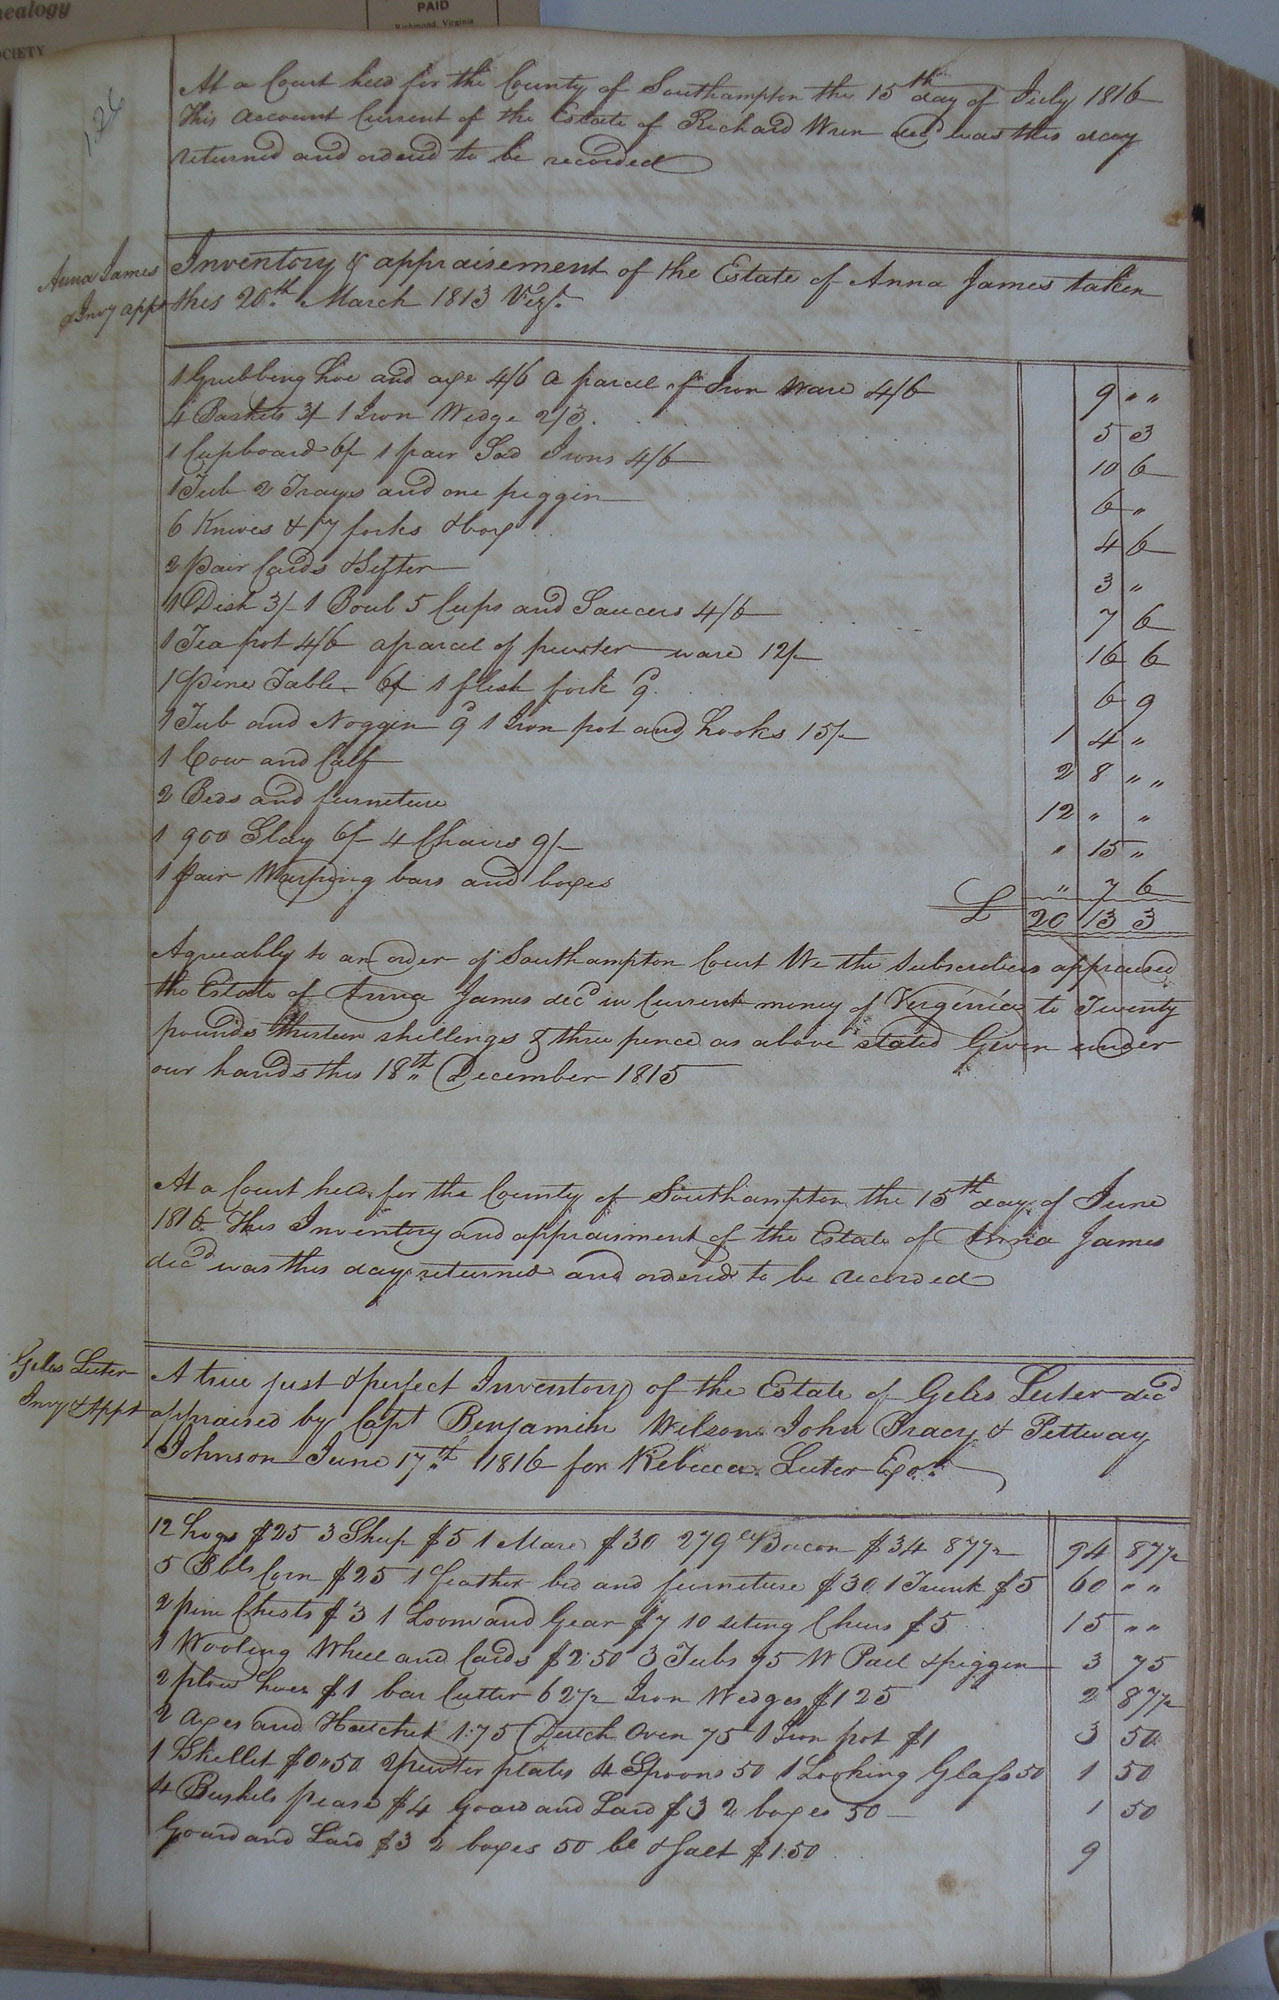 nealogy
OCIETY
PAID
Richmond, Virginia
126
At a Court held for the County of Southampton the 15th day of July 1816
This account Current of the Estate of Richard Wren decd was this day
returned and ordered to be recorded
Anna James
Invy appt
Inventory & appraisement of the Estate of Anna James taken
this 20th March 1813 Vizt.
1 Grubbing hoe and axe 4/6 a parcel of Iron Ware 4/6 9 " "
4 Baskets 3/ 1 Iron Wedge 2/3. 5 3
1 Cupboard 6/ 1 pair Sad Irons 4/6 10 6
1 Tub 2 Trays and one piggin 6 "
6 Knives & 7 forks & box 4 6
2 pair Cards & Sifter 3 "
1 Dish 3/- 1 Boul 5 Cups and Saucers 4/6 7 6
1 Tea pot 4/6 a parcel of pewter ware 12/- 16 6
1 pine Table 6/ 1 flesh fork 9d 6 9
1 Tub and Noggin 9d 1 Iron pot and hooks 15/- 1 4 "
1 Cow and Calf 2 8 " "
2 Beds and furneture 12 " "
1 900 Slay 6/ 4 Chairs 9/- " 15 "
1 pair Warping bars and boxes " 7 6
£ 20 13 3
Agreeably to an order of Southampton Court We the Subscribers appraised
the Estate of Anna James decd in Current money of Vergenia to Twenty
pounds thirteen shillings & three pence as above stated Given under
our hands this 18th December 1815
At a Court held for the County of Southampton the 15th day of June
1816 This Inventory and appraisment of the Estate of Anna James
decd was this day returned and ordered to be recorded
Giles Luter
Invy & Appt
A true just & perfect Inventory of the Estate of Geles Luter decd
appraised by Capt Benjamin Wilson John Pracy & Pettway
Johnson June 17th 1816 for Rebecca Luter Exor.
12 hogs $25 3 Sheep $5 1 Mare $30 279 Bacon $34 87½ 94 87½
5 Bbls Corn $25 1 feather bed and furneture $30 1 Trunk $5 60 " "
2 pine Chests $3 1 Loom and Gear $7 10 seting Chers $5 15 " "
1 Wooling Wheel and Cards $2.50 3 Tubs 75 W Pail & piggen 3 75
2 plow hoes $1 bar Cutter 62½ Iron Wedges $1 25 2 87½
2 axes and Hatchet 1.75 Dutch Oven 75 1 Iron pot $1 3 50
1 Skillet $0"50 2 pewter plates 4 Spoons 50 1 Looking Glass 50 1 50
4 Bushels pease $4 goard and Lard $3 2 boxes 50 1 50
Goard and Lard $3 2 boxes 50 bl & salt $1.50 9